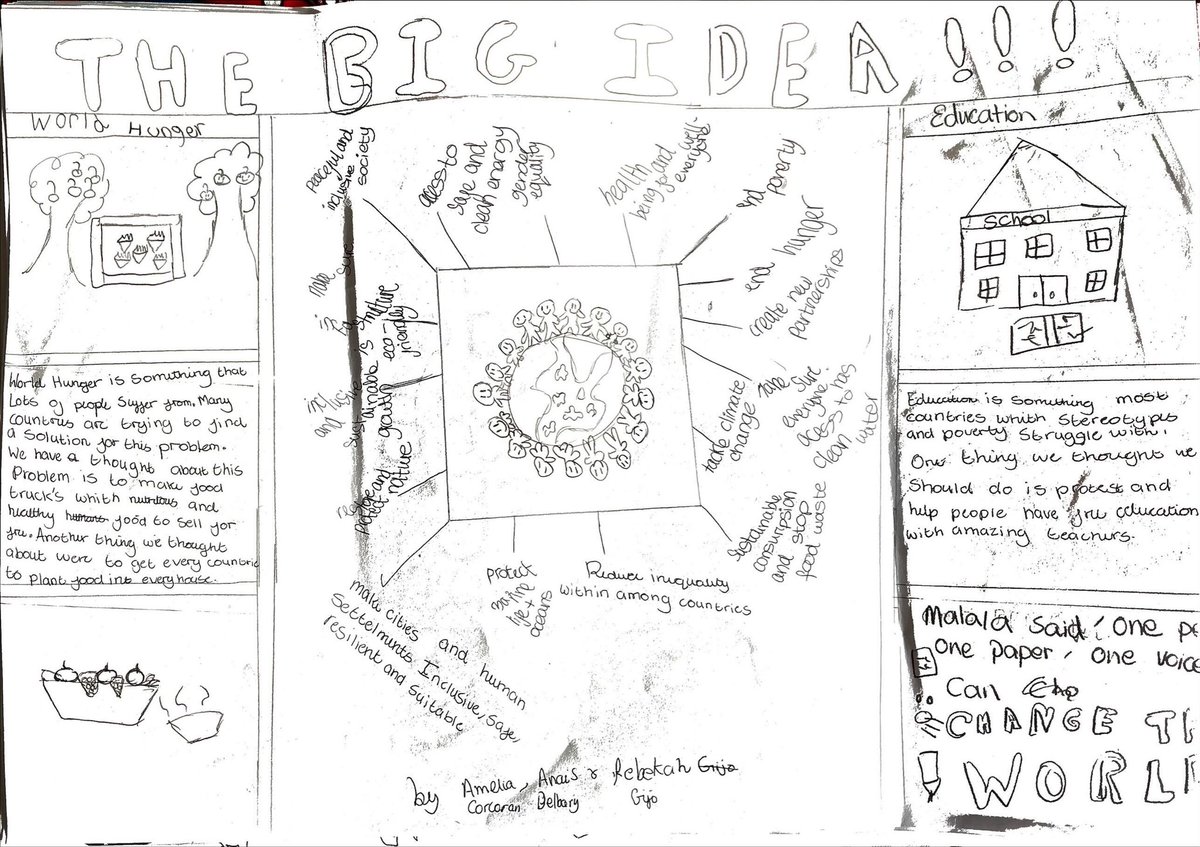 THE BIG IDEA!!!
World Hunger
World Hunger is something that
Lots of people Suffer from. Many
countrus are trying to find
a solution for this problem.
We have a thought about this
Problem is to make food
truck's whith nutritous and
healthy food to sell for
fru. Another thing we thought
about were to get every countrie
to Plant food into every house.
Peaceful and
inclusive
society
access to
safe and
clean energy
gender
equality
health
being good
well-
everyone
end
poverty
end hunger
create new
partnerships
make sure
everyone
acess to has
clean
water
tackle climate
change
Sustainable
consumpsion
and stop
food waste
Reduce inequality
within among countries
protect
marine
life +
oceans
make cities and human
Settelmunts Inclusive, safe,
resilient and suitable
nature
eco-
friendly
growth
and
nature
by Amelia, Anais & Rebekah Gijo
Corcoran Delbary Gijo
Education
School
Education is something most
countries whith stereotypes
and poverty struggle with.
One thing we thought we
Should do is protest and
help people have fru education
with amazing teachers.
Malala said, 'One pe
one paper, one voice
Can
CHANGE T
WORL